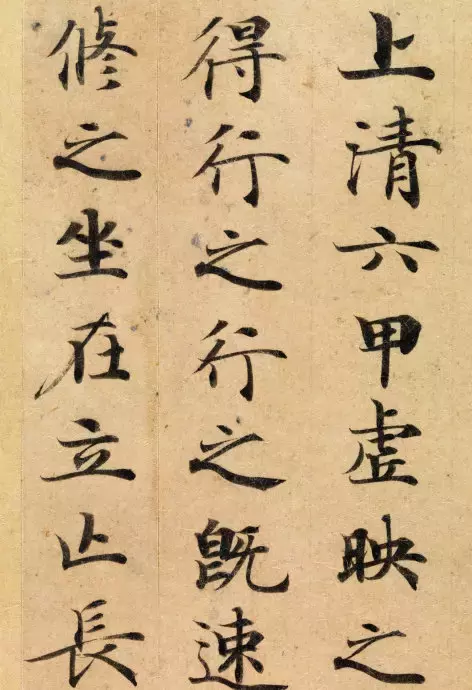 上清六甲虚映之
得行之行之既速
脩之坐在立亡長